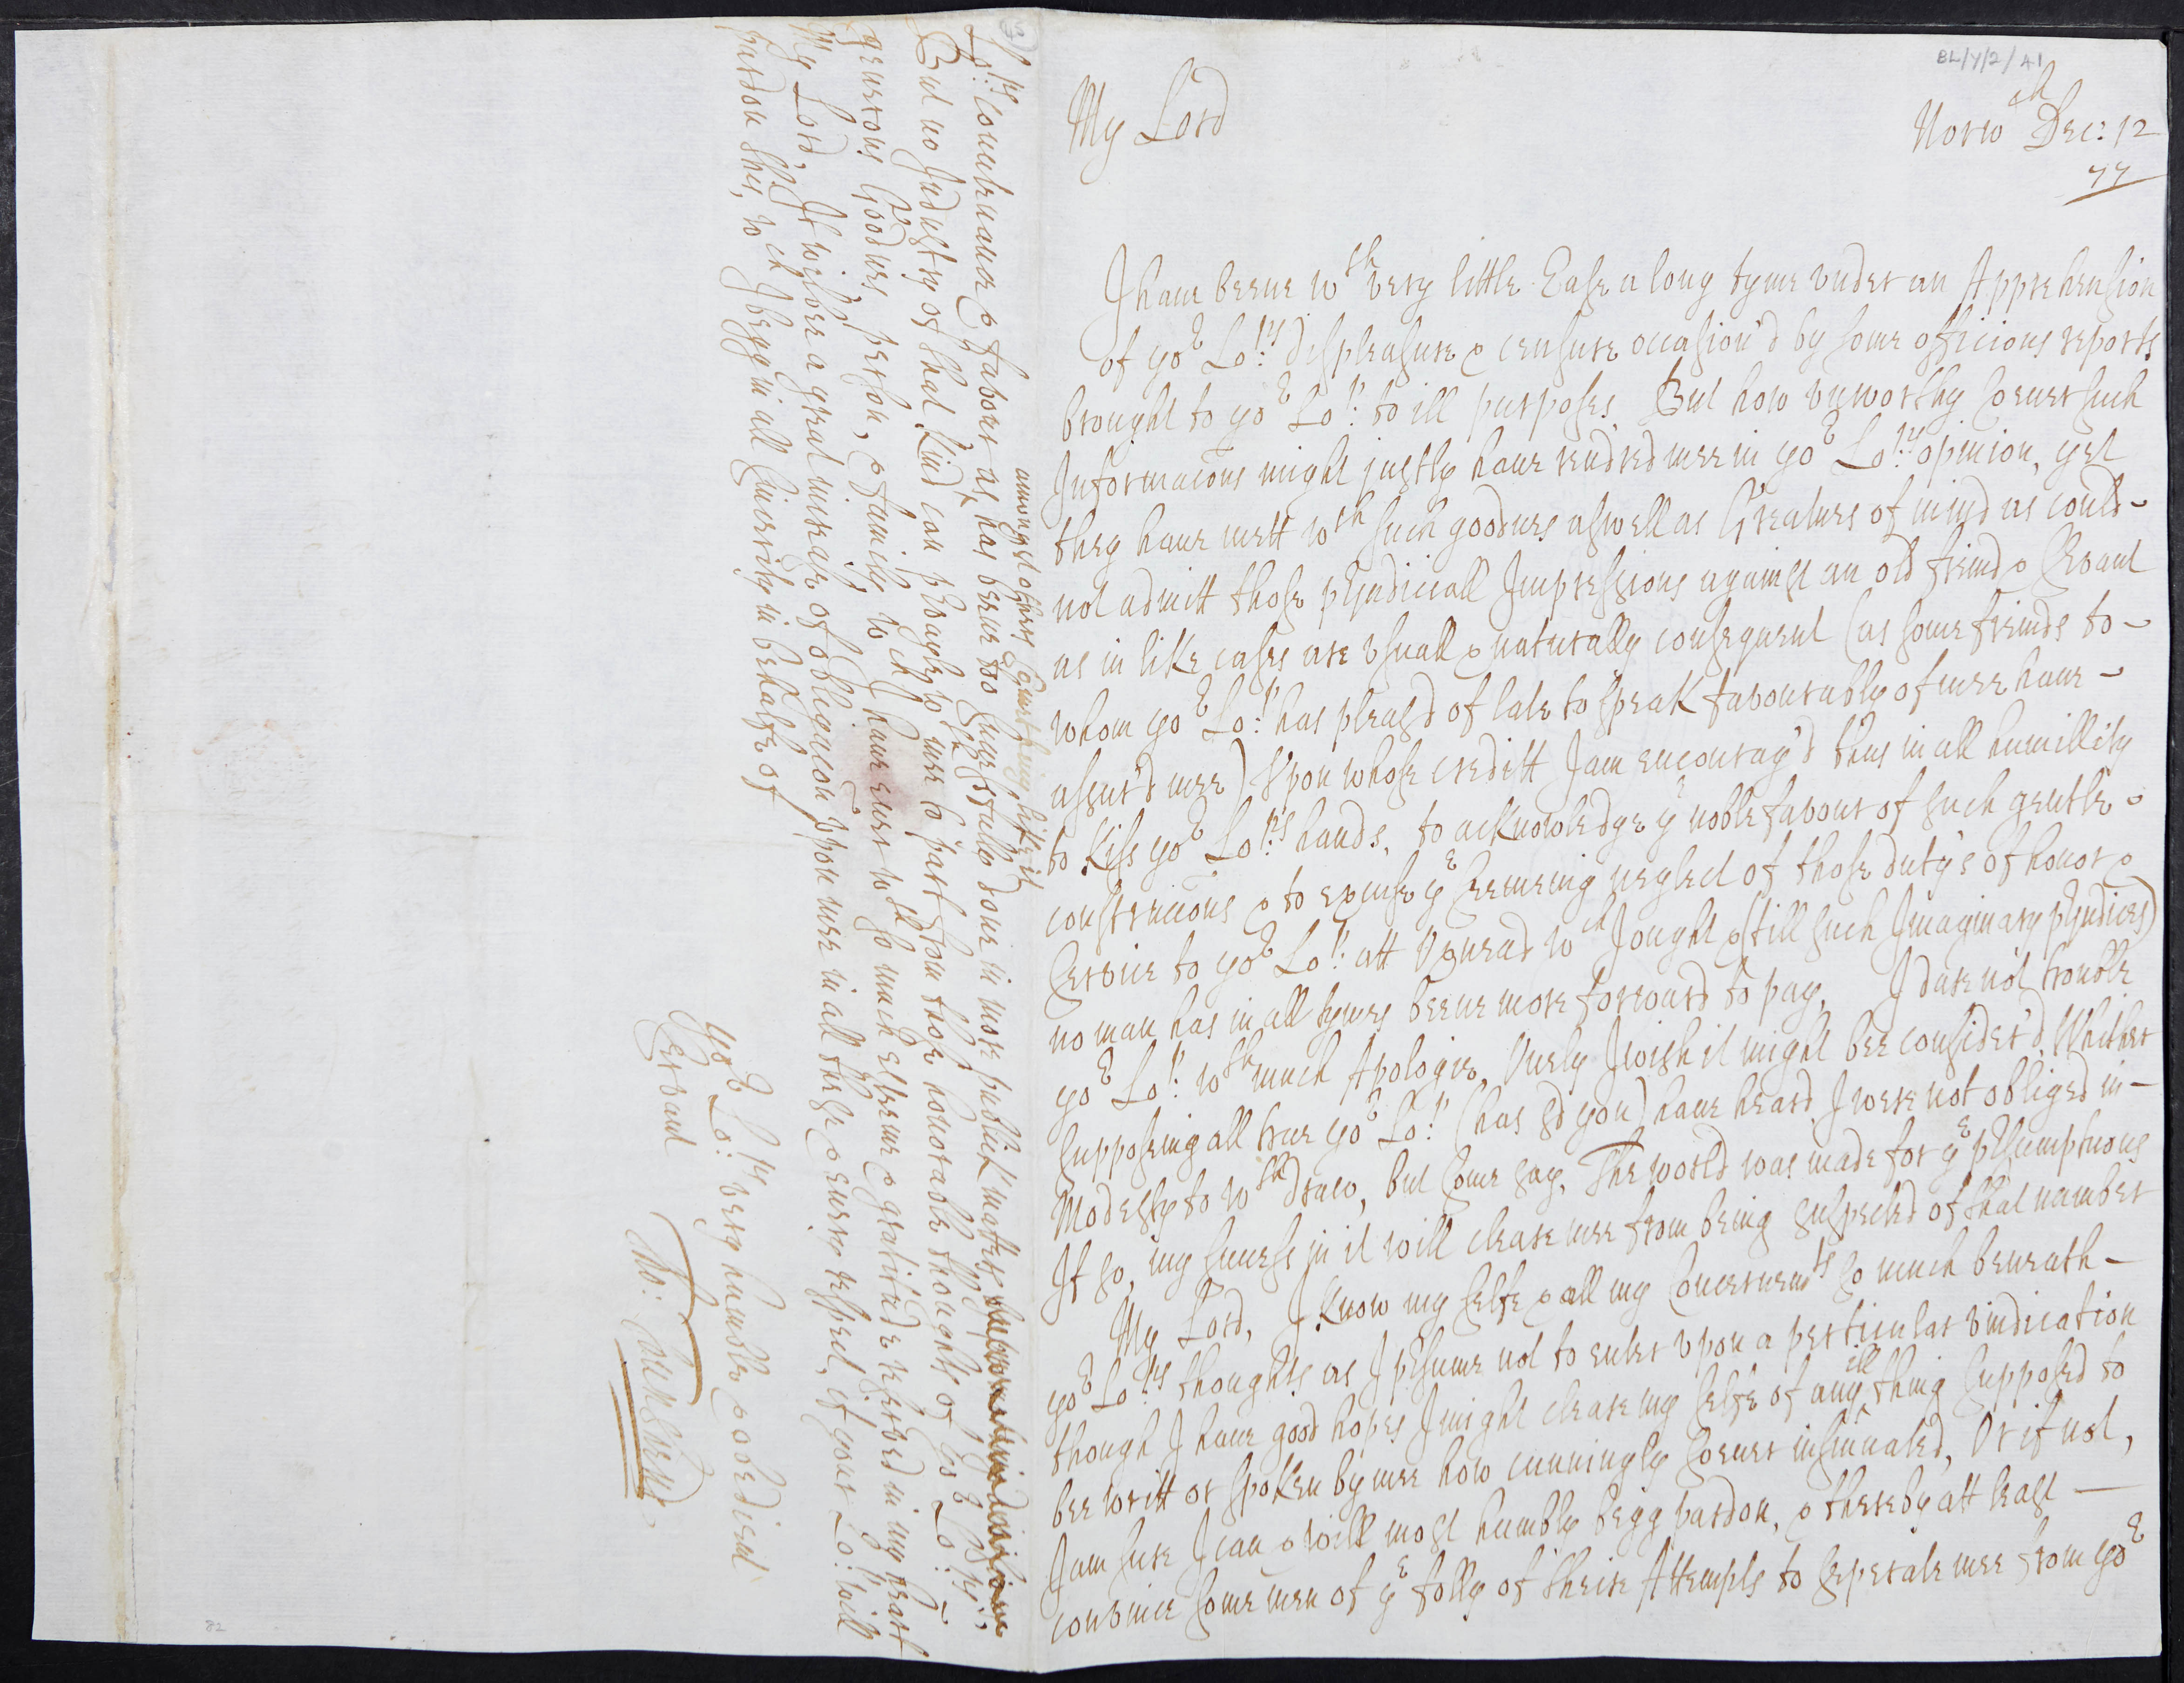 BL/Y/2/41
My Lord
Norwch Dec: 12
77
I haue beene wth very little Ease a long tyme vnder an Apprehension
of yor Lo:pps displeasure & censure occasion'd by some officious reports
brought to yor Lo:pp to ill purposes. But how vnworthy soeuer such
Informacons might justly haue rendred mee in yor Lo:pps opinion, yet
they haue mett wth such goodnes aswell as Greatnes of mind as could-
not admitt those prjudiciall Impressions against an old freind & Servant
as in like cases are vsuall & naturally consequent (as some freinds to-
whom yor Lo:pp has pleasd of late to speak favourably of mee haue-
assur'd mee) Vpon whose creditt I am encourag'd thus in all humillity
to kiss yor Lo:pps hands, to acknowledge ye noble favour of such gentle-
construccons & to excuse ye seeming neglect of those duty's of honor &
Service to yor Lo:pp att wch I ought & (till such Imaginary prjudices)
no man has in all tymes beene more forward to pay, I dare not trouble
yor Lo:pp wth much Apologie, Onely I wish it might bee consider'd, Whither
supposeing all true yor Lo:pp (has sd you) haue heard, I were not obliged in-
Modesty to wthdraw, but some say, The world was made for ye prsumptuous
If so, my sunesse in it will cleare mee from being suspected of that number
My Lord, I know my selfe & all my Concernemts so much beneath-
yor Lo:pps thoughts as I prsume not to enter vpon a perticular vindication
though I haue good hopes I might cleare my selfe of any ill thing supposed to
bee writt or spoken by mee how cunningly soeuer insinuated, Or if not,
I am sure I can & will most humbly begg pardon, & thereby att least-
convince some men of ye folly of theire Attempts to seperate mee from yor
Lo:pps Countenance & favour as amongst others something like it has beene too succesfully done in more publick matters
But no Industry of that kind can prvayle wth mee to part from those honorable thoughts of yor Lo:pps,
generous Goodnes, person, & family wch I haue euer wth so much esteeme & gratitude reserved in my heart
My Lord, It wilbee a great increase of obligacon vpon mee in all these & euery respect, if your Lo:pp will
pardon this, wch I begg in all sincerity in behalfe of
yor Lo:pps very humble & obedient
Servant
82